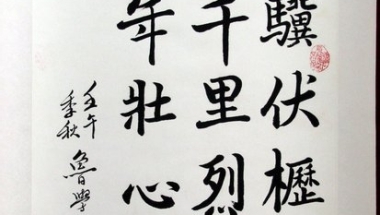 驥伏櫪
千里烈
年壯心
壬午
季秋
魯學